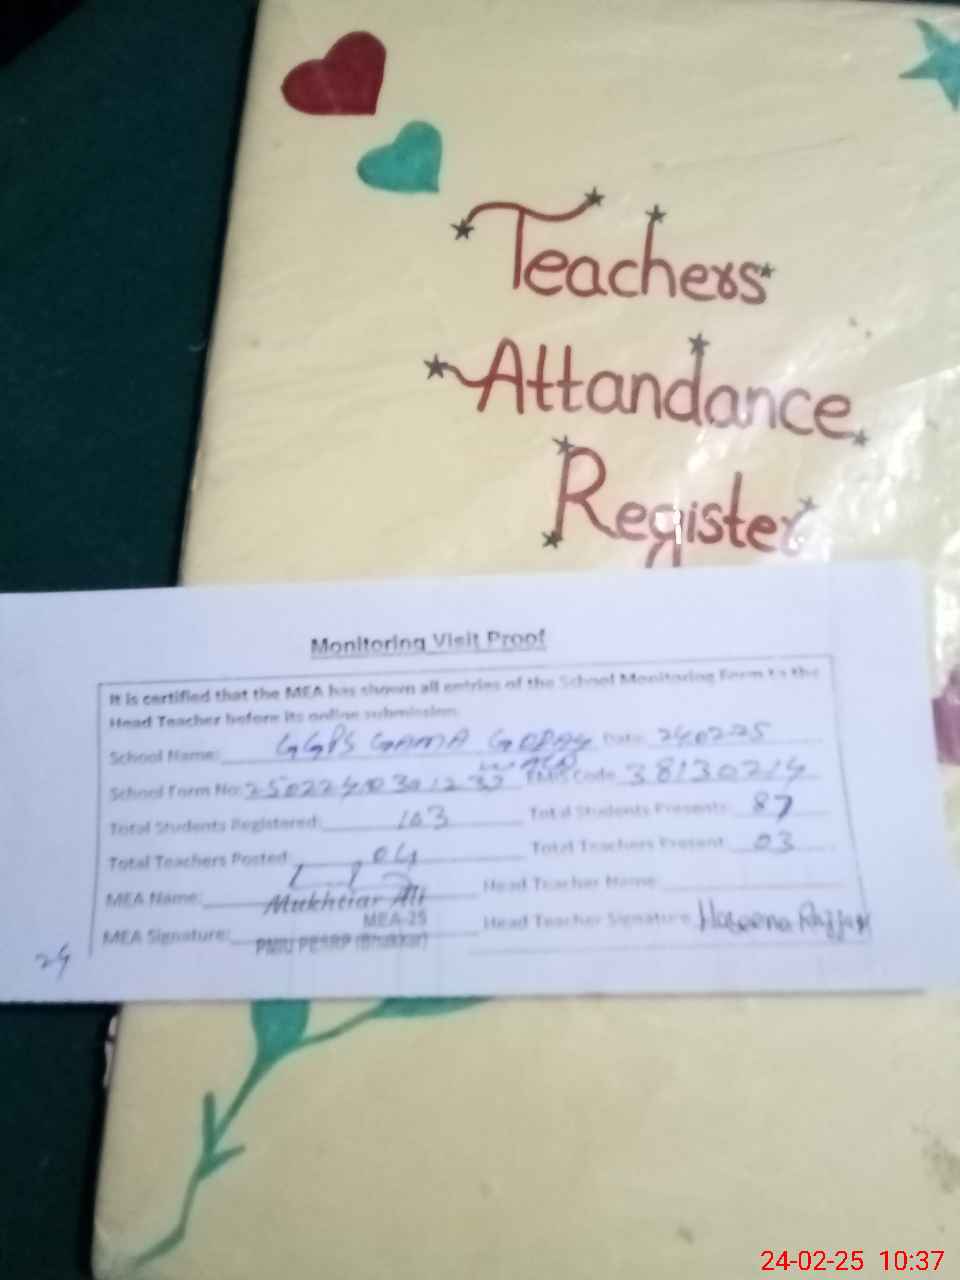 Teachers
Attandance
Register
Monitoring Visit Proof
It is certified that the MEA has shown all entries of the School Monitoring Form to the
Head Teacher before its online submission.
School Name: GGPS GAMA Date: 240225
School Form No: EMIS Code 38130214
Total Students Registered: 103 Total Students Presents: 87
Total Teachers Posted: 04 Total Teachers Present: 03
MEA Name: Mukhtiar Ali Head Teacher Name:
MEA-25
MEA Signature: PMIU PESRP (Bhakkar) Head Teacher Signature:
24
24-02-25 10:37